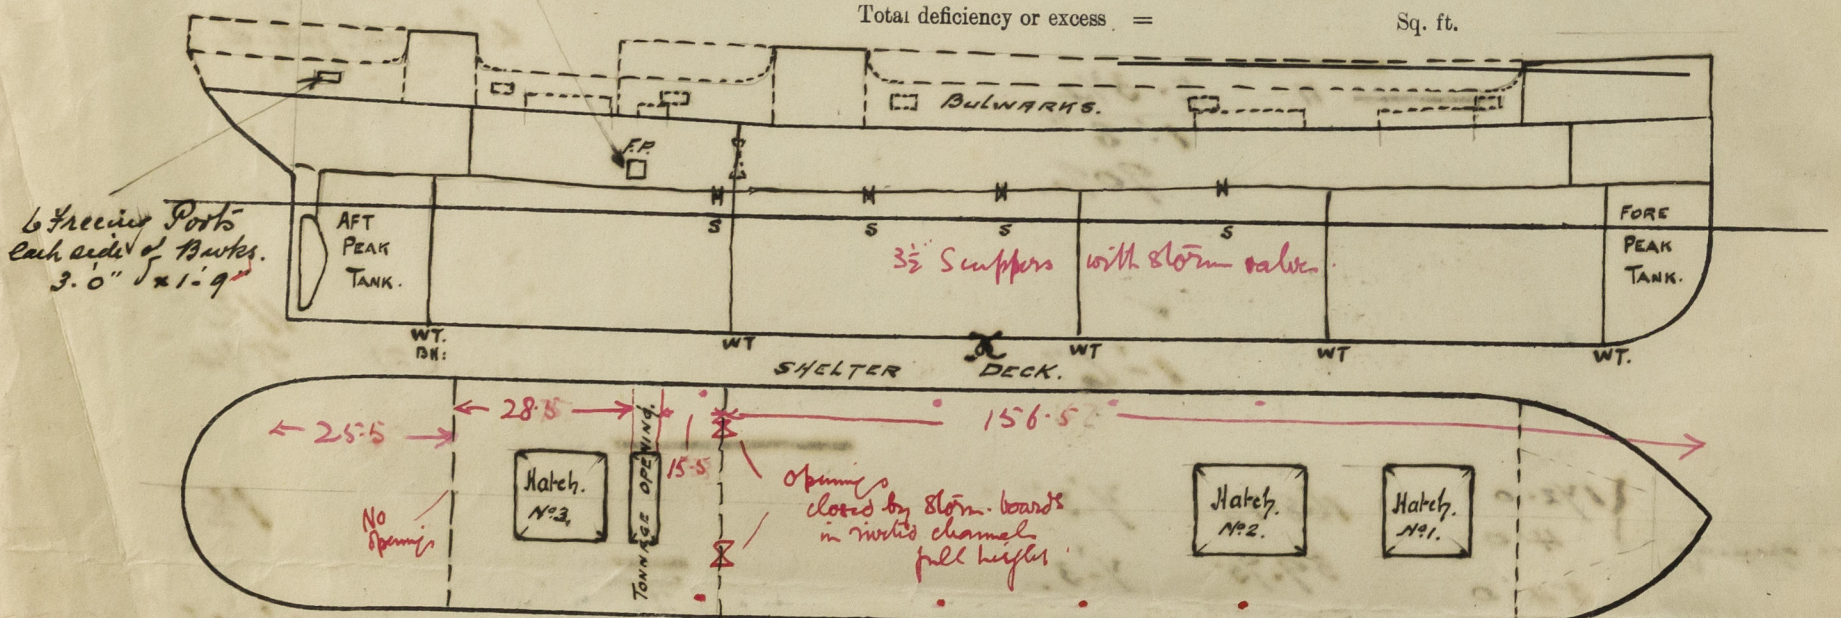 Total deficiency or excess = Sq. ft.
BULWARKS.
F.P.
6 Freeing Ports
each side of Bwks.
3'.0" x 1'-9"
AFT
PEAK
TANK.
S
S
S
S
3½" Scuppers with storm valves
FORE
PEAK
TANK.
WT.
BH:
WT
WT
WT
WT.
SHELTER DECK.
25.5
28.5
15.5
156.5
TONNAGE OPENING.
No
openings
Hatch.
Nº3.
openings
closed by storm boards
in riveted channels
full height
Hatch.
Nº2.
Hatch.
Nº1.